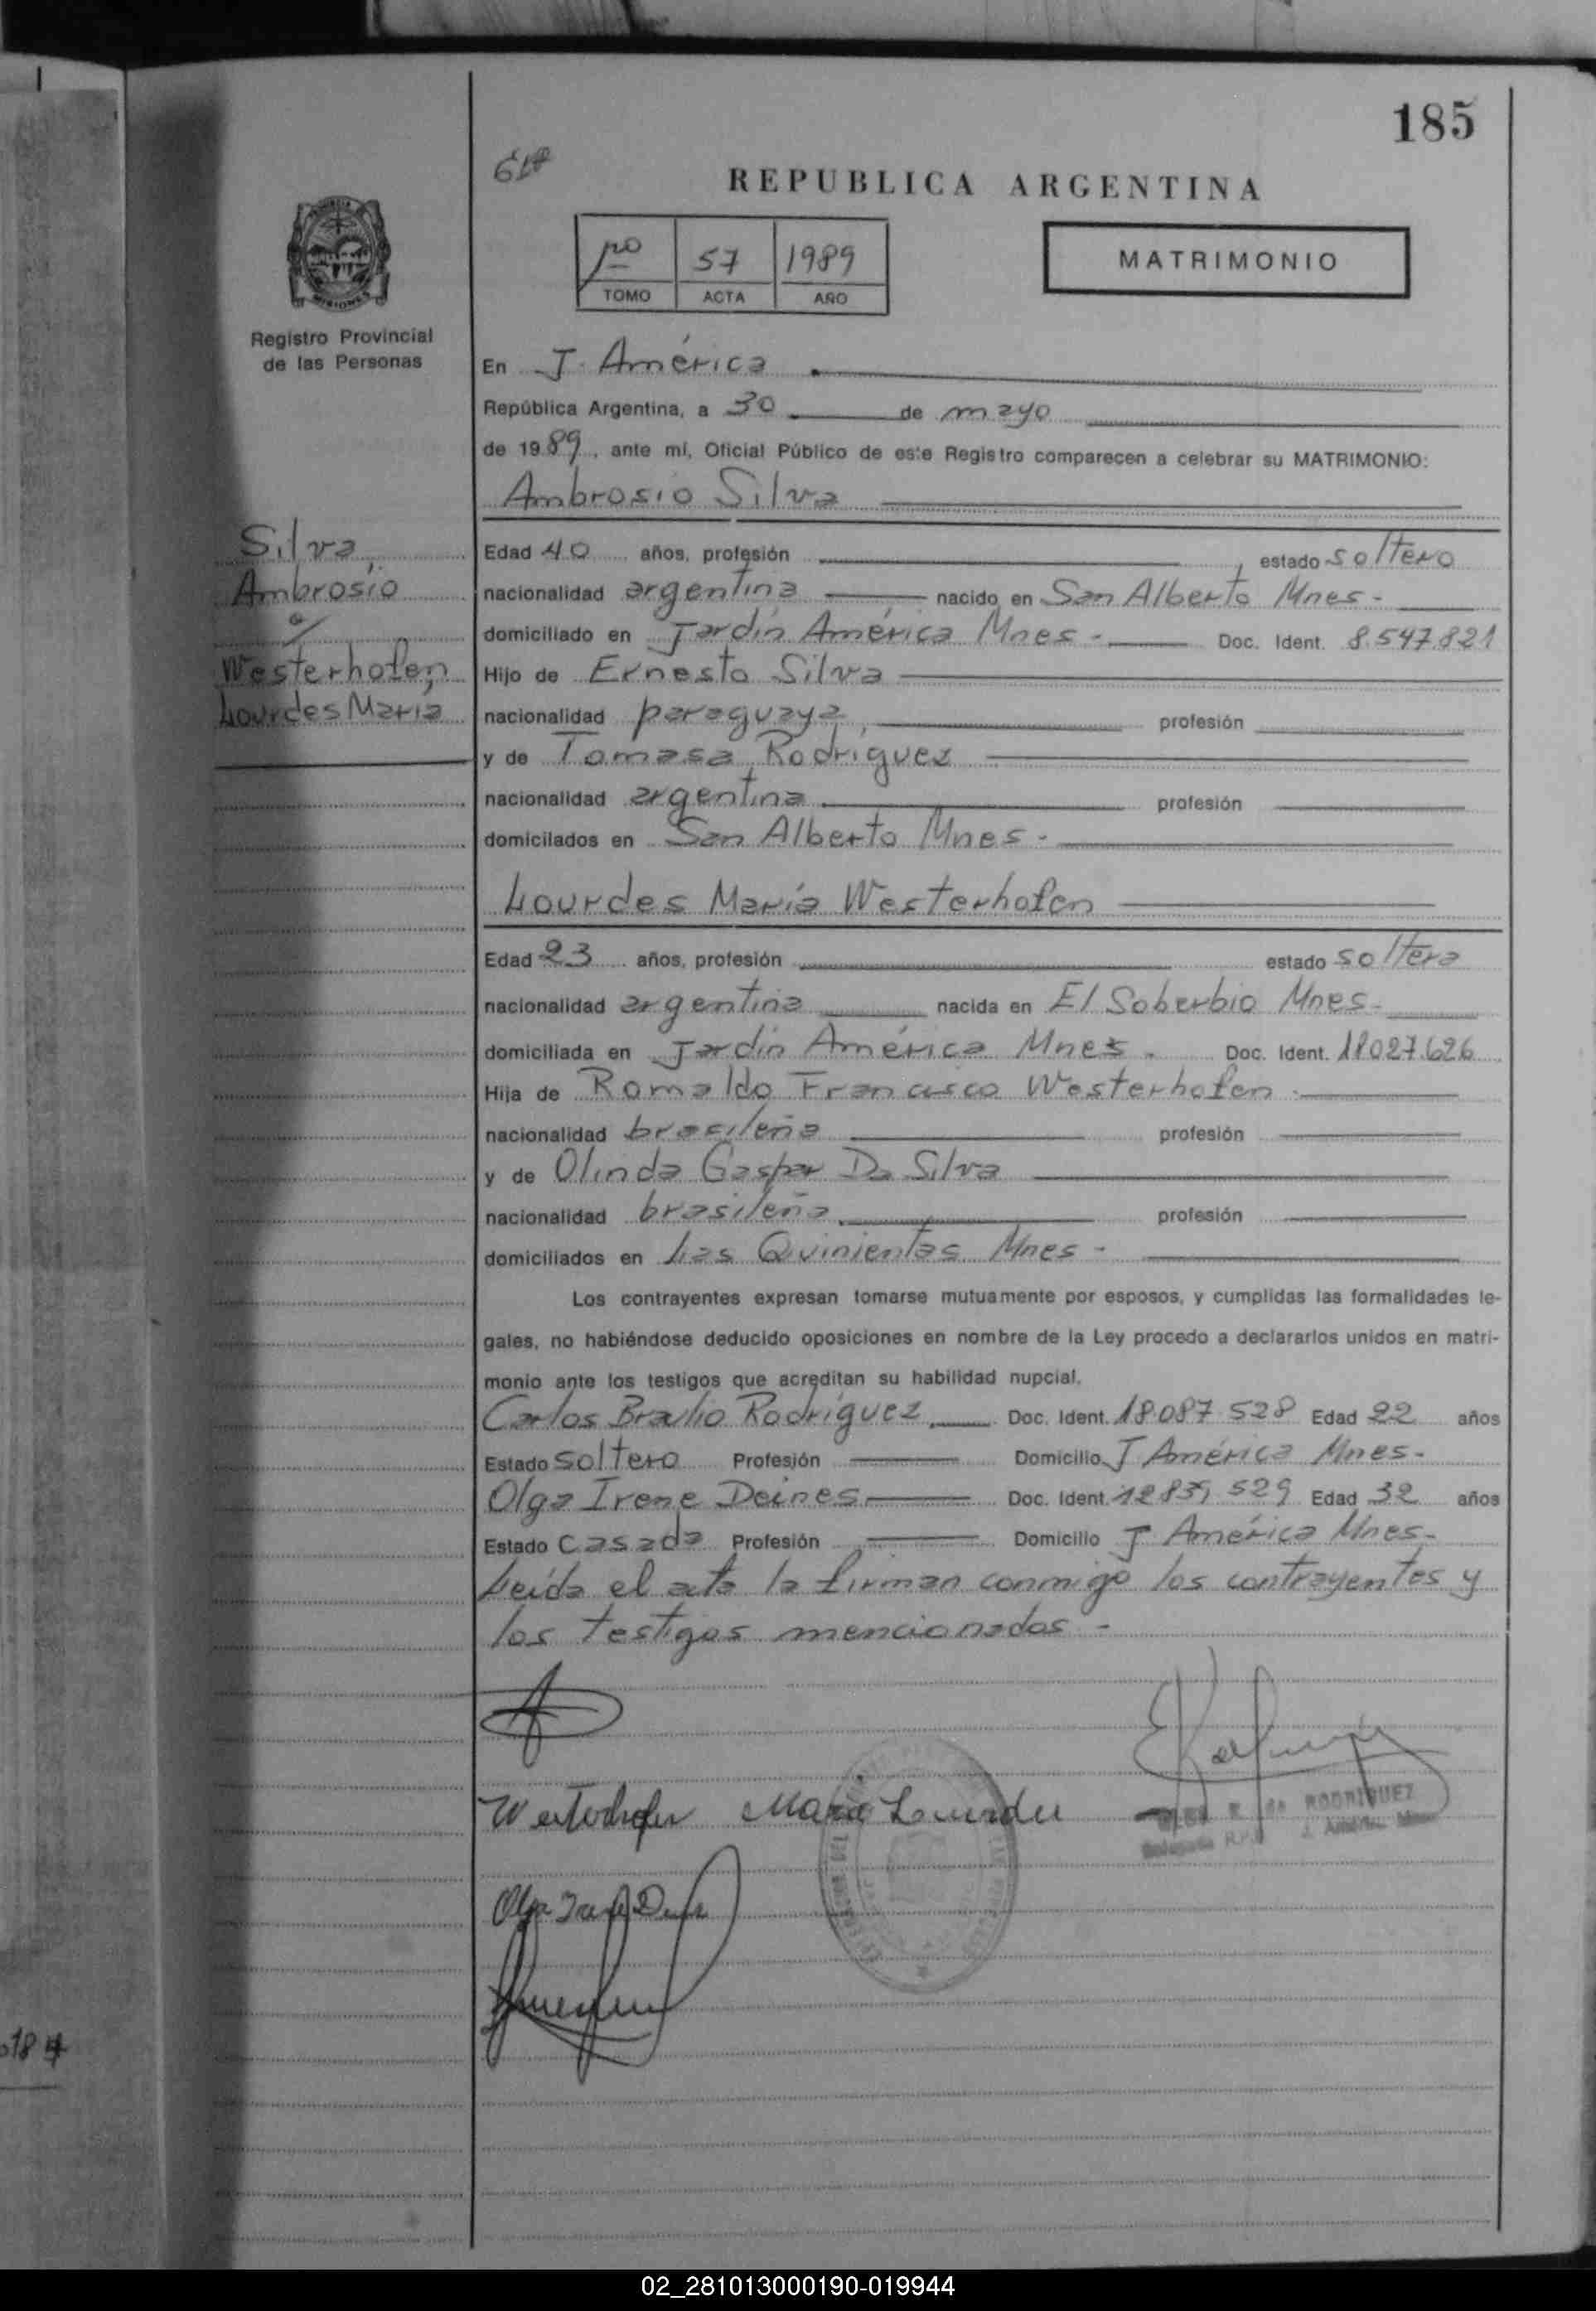 185
REPUBLICA ARGENTINA
57 1989
TOMO ACTA AÑO
MATRIMONIO
MISIONES
Registro Provincial
de las Personas
En J. América
República Argentina, a 30 de mayo
de 1989, ante mí, Oficial Público de este Registro comparecen a celebrar su MATRIMONIO:
Ambrosio Silva
Silva
Ambrosio
Westerhofen
Lourdes María
Edad 40 años, profesión estado soltero
nacionalidad argentina nacido en San Alberto Mnes-
domiciliado en Jardín América Mnes- Doc. Ident. 8.547.821
Hijo de Ernesto Silva
nacionalidad paraguaya, profesión
y de Tomasa Rodríguez
nacionalidad argentina profesión
domicilados en San Alberto Mnes-
Lourdes María Westerhofen
Edad 23 años, profesión estado soltera
nacionalidad argentina nacida en El Soberbio Mnes-
domiciliada en Jardín América Mnes. Doc. Ident. 18027.626
Hija de Romaldo Francisco Westerhofen
nacionalidad brasileña profesión
y de Olinda Gaspar Da Silva
nacionalidad brasileña profesión
domiciliados en Las Quinientas Mnes-
Los contrayentes expresan tomarse mutuamente por esposos, y cumplidas las formalidades le-
gales, no habiéndose deducido oposiciones en nombre de la Ley procedo a declararlos unidos en matri-
monio ante los testigos que acreditan su habilidad nupcial.
Carlos Braulio Rodríguez Doc. Ident. 18.087.528 Edad 22 años
Estado soltero Profesión Domicilio J América Mnes-
Olga Irene Deines Doc. Ident. 12.839.529 Edad 32 años
Estado casada Profesión Domicilio J América Mnes-
Leída el acta la firman conmigo los contrayentes y
los testigos mencionados-
Westerhofen María Lourdes
RODRIGUEZ
184
02_281013000190-019944